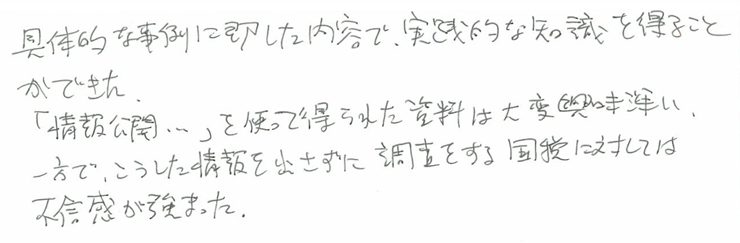 具体的な事例に即した内容で、実践的な知識を得ること
ができた。
「情報公開…」を使って得られた資料は大変興味深い、
一方で、こうした情報を出さずに調査をする国税に対しては
不信感が強まった。